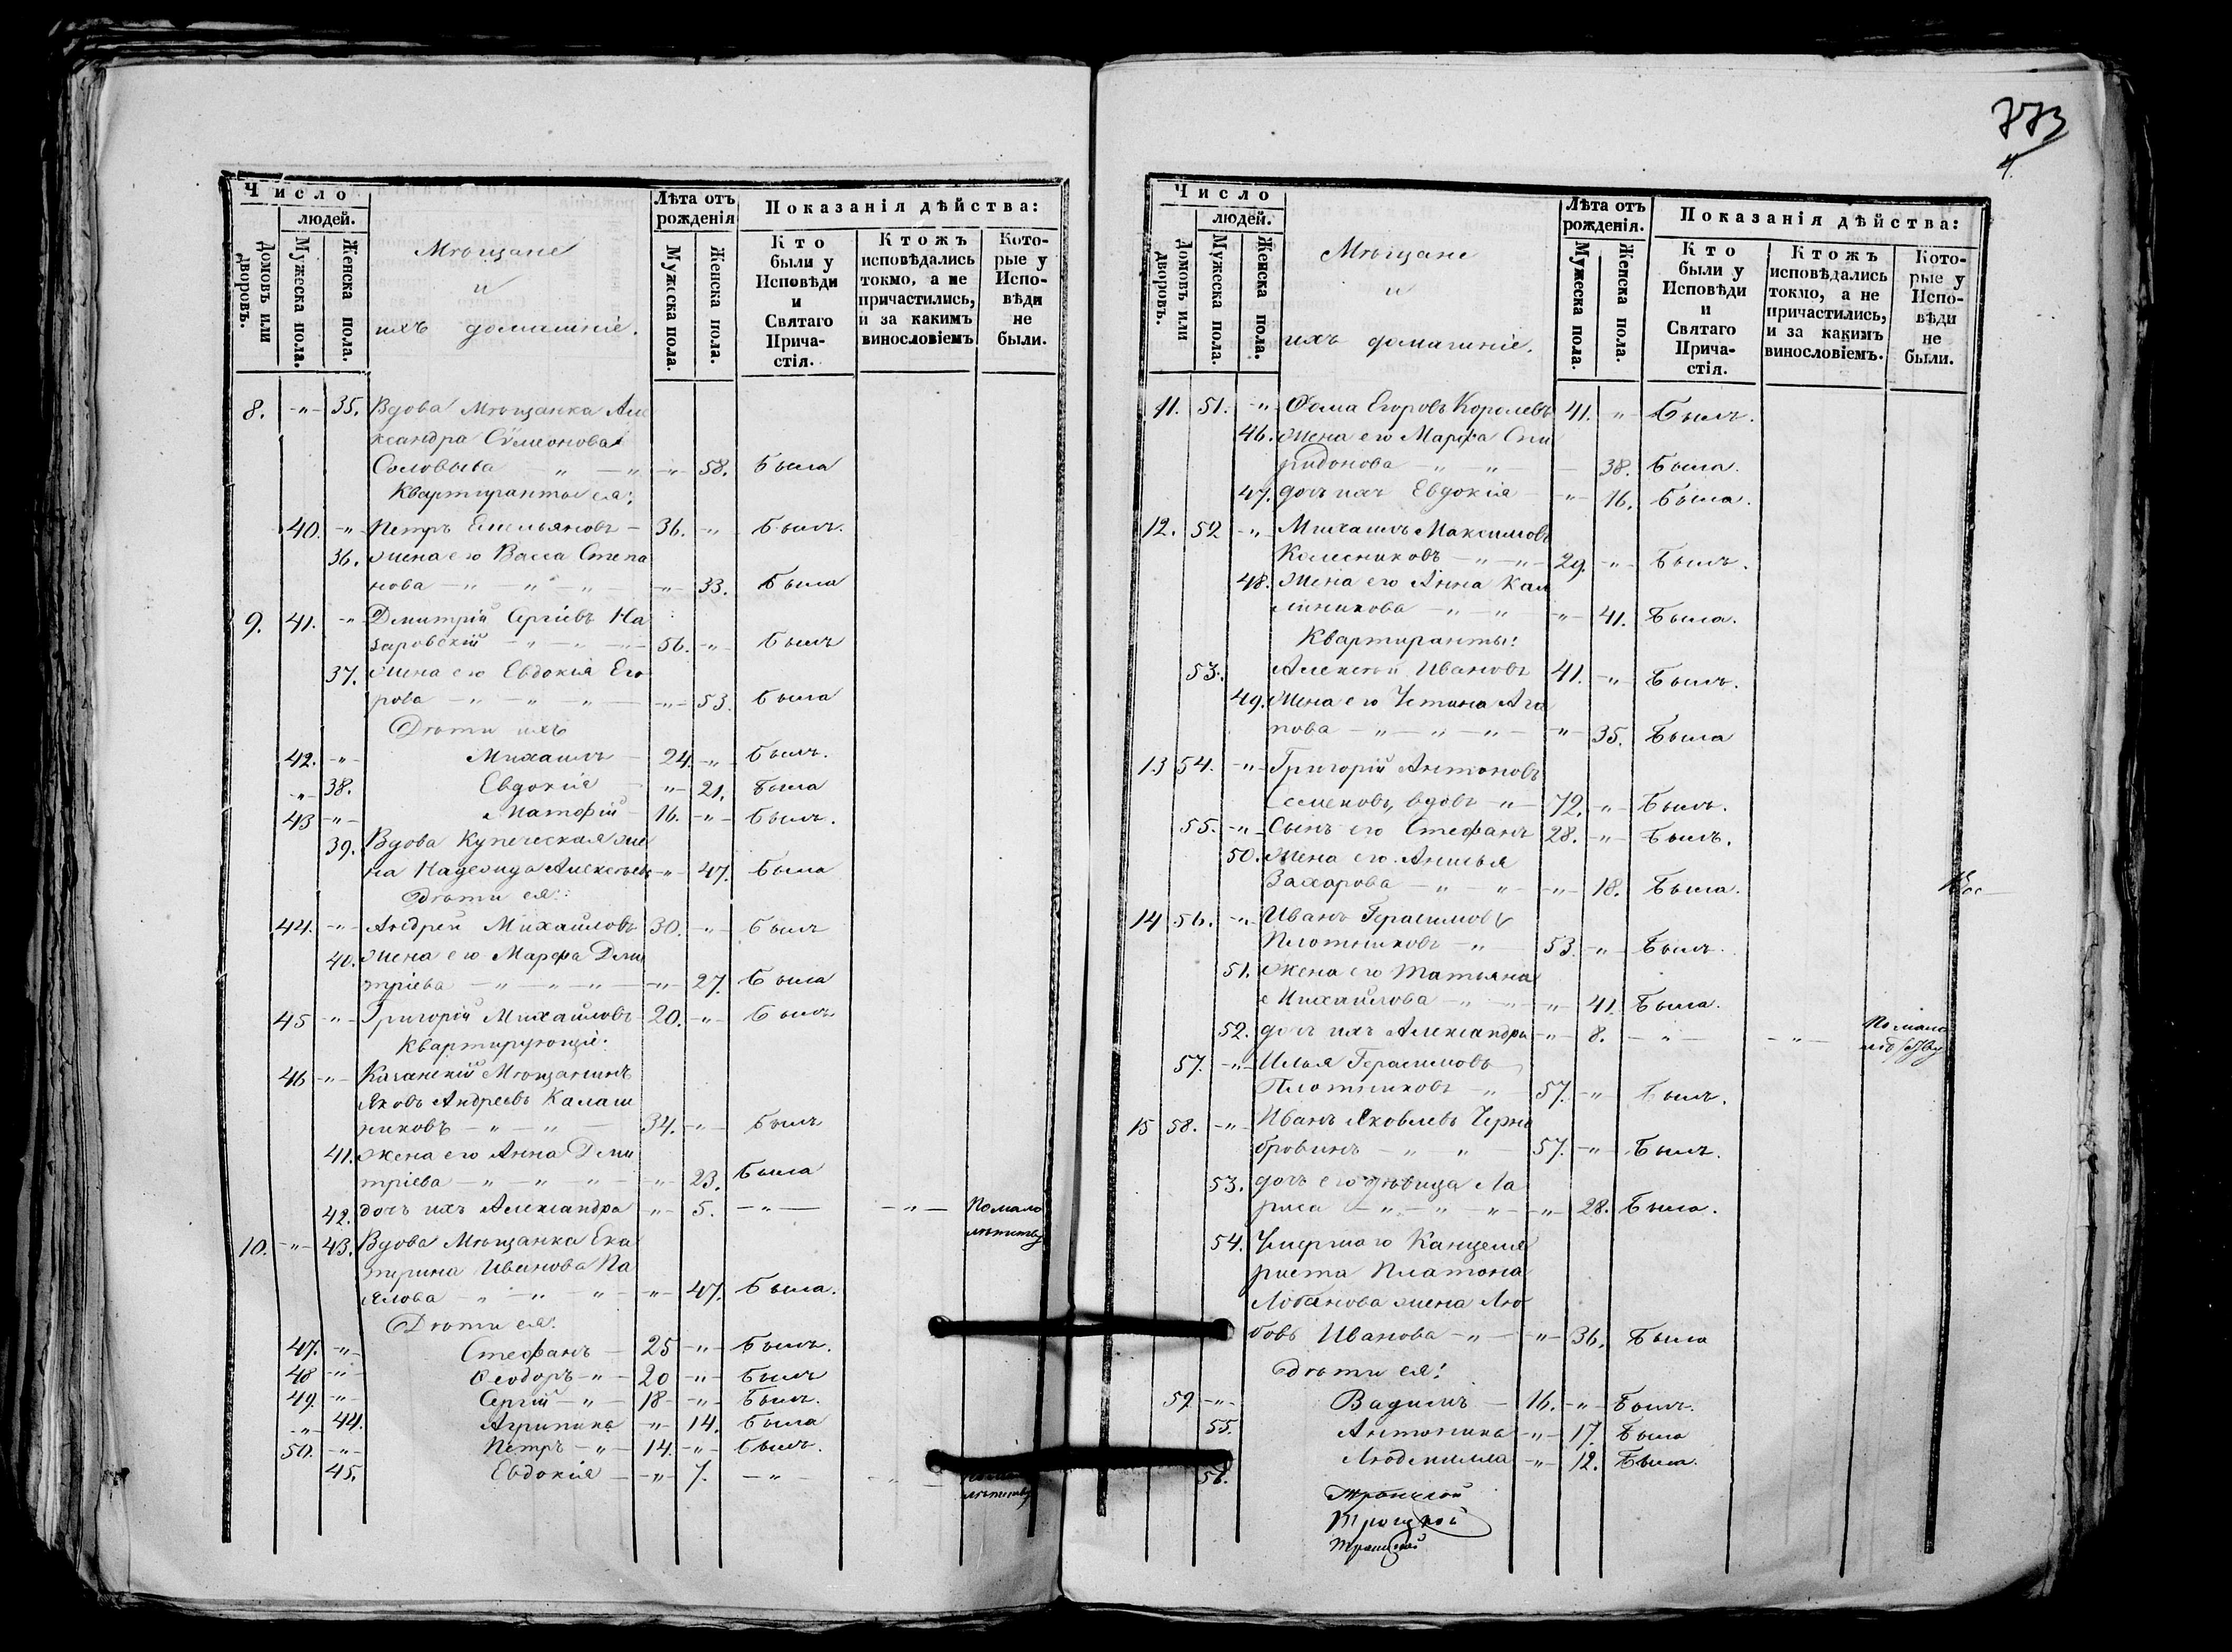 773
4.
Число
людей.
Домовъ или дворовъ.
Мужеска пола.
Женска пола.
Мѣщане
и
ихъ домашніе.
Лѣта отъ рожденія
Мужеска пола.
Женска пола.
Показанія дѣйства:
Кто были у Исповѣди и Святаго Прича-стія.
Ктожъ исповѣдались токмо, а не причастились, и за какимъ винословіемъ
Кото-рые у Испо-вѣди не были.
8. -"- 35. Вдова Мѣщанка Але
ксандра Сѵмеонова
Соловьева " " -"- 58. Была
Квартиранты ея:
40. -"- Петръ Емельяновъ - 36. -"- Былъ.
36. Жена его Васса Степа
нова " " " -"- 33. Была
9. 41. -"- Дмитрій Сергіевъ На
заровскій " " " 56. -"- Былъ
37. Жена его Евдокія Его
рова " " " -"- 53. Была
Дѣти ихъ
42. -"- Михаилъ - 24. -"- Былъ.
-"- 38. Евдокія - -"- 21. Была
43 -"- Матфій - 16. -"- Былъ.
39. Вдова Купеческая же
на Надежда Алексѣева -"- 47. Была
Дѣти ея:
44. -"- Андрей Михайловъ 30. -"- Былъ
40. Жена его Марфа Дми
тріева " " " -"- 27. Была
45 -"- Григорій Михайловъ 20. -"- Былъ
Квартирующіе:
46 -"- Мѣщанинъ
Яковъ Андреевъ Калаш
никовъ " " 34. -"- Былъ
41. Жена его Анна Дми
тріева " " " -"- 23. Была
42. дочь ихъ Александра -"- 5. -"- -"- По мало
лѣтству
10. -"- 43. Вдова Мѣщанка Ека
терина Иванова Па
" " " -"- 47. Была.
Дѣти ея:
47. -"- Стефанъ - 25 -"- Былъ.
48 -"- Ѳеодоръ -"- 20 -"- Былъ
49. -"- Сергій -"- 18 -"- Былъ.
-"- 44. Агрипина -"- 14. Была
50. -"- Петръ -"- 14. -"- Былъ.
45. Евдокія -"- 7. -"- -"-
лѣтству
Число
людей.
Домовъ или дворовъ.
Мужеска пола.
Женска пола.
Мѣщане
и
ихъ домашніе.
Лѣта отъ рожденія.
Мужеска пола.
Женска пола.
Показанія дѣйства:
Кто были у Исповѣди и Святаго Прича-стія.
Ктожъ исповѣдались токмо, а не причастились, и за какимъ винословіемъ.
Кото-рые у Испо-вѣди не были.
11. 51. -"- Ѳома Егоровъ Королевъ 41. " Былъ.
46. Жена его Марфа Спи
ридонова " " - 38. Была.
47. дочь ихъ Евдокія -"- 16. Была.
12. 52 -"- Михаилъ Максимовъ
Колесниковъ " " 29. -"- Былъ.
48. Жена его Анна Кал
линикова " " -"- 41. Была.
Квартиранты:
53. Алексѣй Ивановъ 41. -"- Былъ.
49. Жена его Устина Ага
пова " " " -"- 35. Была
13 54. -"- Григорій Антоновъ
Семеновъ, вдовъ -"- 72. -"- Былъ.
55. -"- Сынъ его Стефанъ 28. -"- Былъ.
50. Жена его Анисья
Захарова " " -"- 18. Была.
14 56. -"- Иванъ Герасимовъ
Плотниковъ " 53. -"- Былъ.
51. Жена его Татьяна
Михайлова " " -"- 41. Была.
52. дочь ихъ Александра -"- 8. -"- -"- По мало
лѣтству
57. -"- Илья Герасимовъ
Плотниковъ " 57. -"- Былъ.
15 58. -"- Иванъ Яковлевъ Черно
бровинъ " " 57. -"- Былъ.
53. дочь его дѣвица Ла
риса " " " -"- 28. Была.
54. Умершаго Канцеля
риста Платона
Лобанова жена Лю
бовь Иванова -"- -"- 36. Была
Дѣти ея:
59 -"- Вадимъ - 16. -"- Былъ.
55. Антонина -"- 17. Была
56. Людмилла -"- 12. Была.
Троицкой
Троицкой